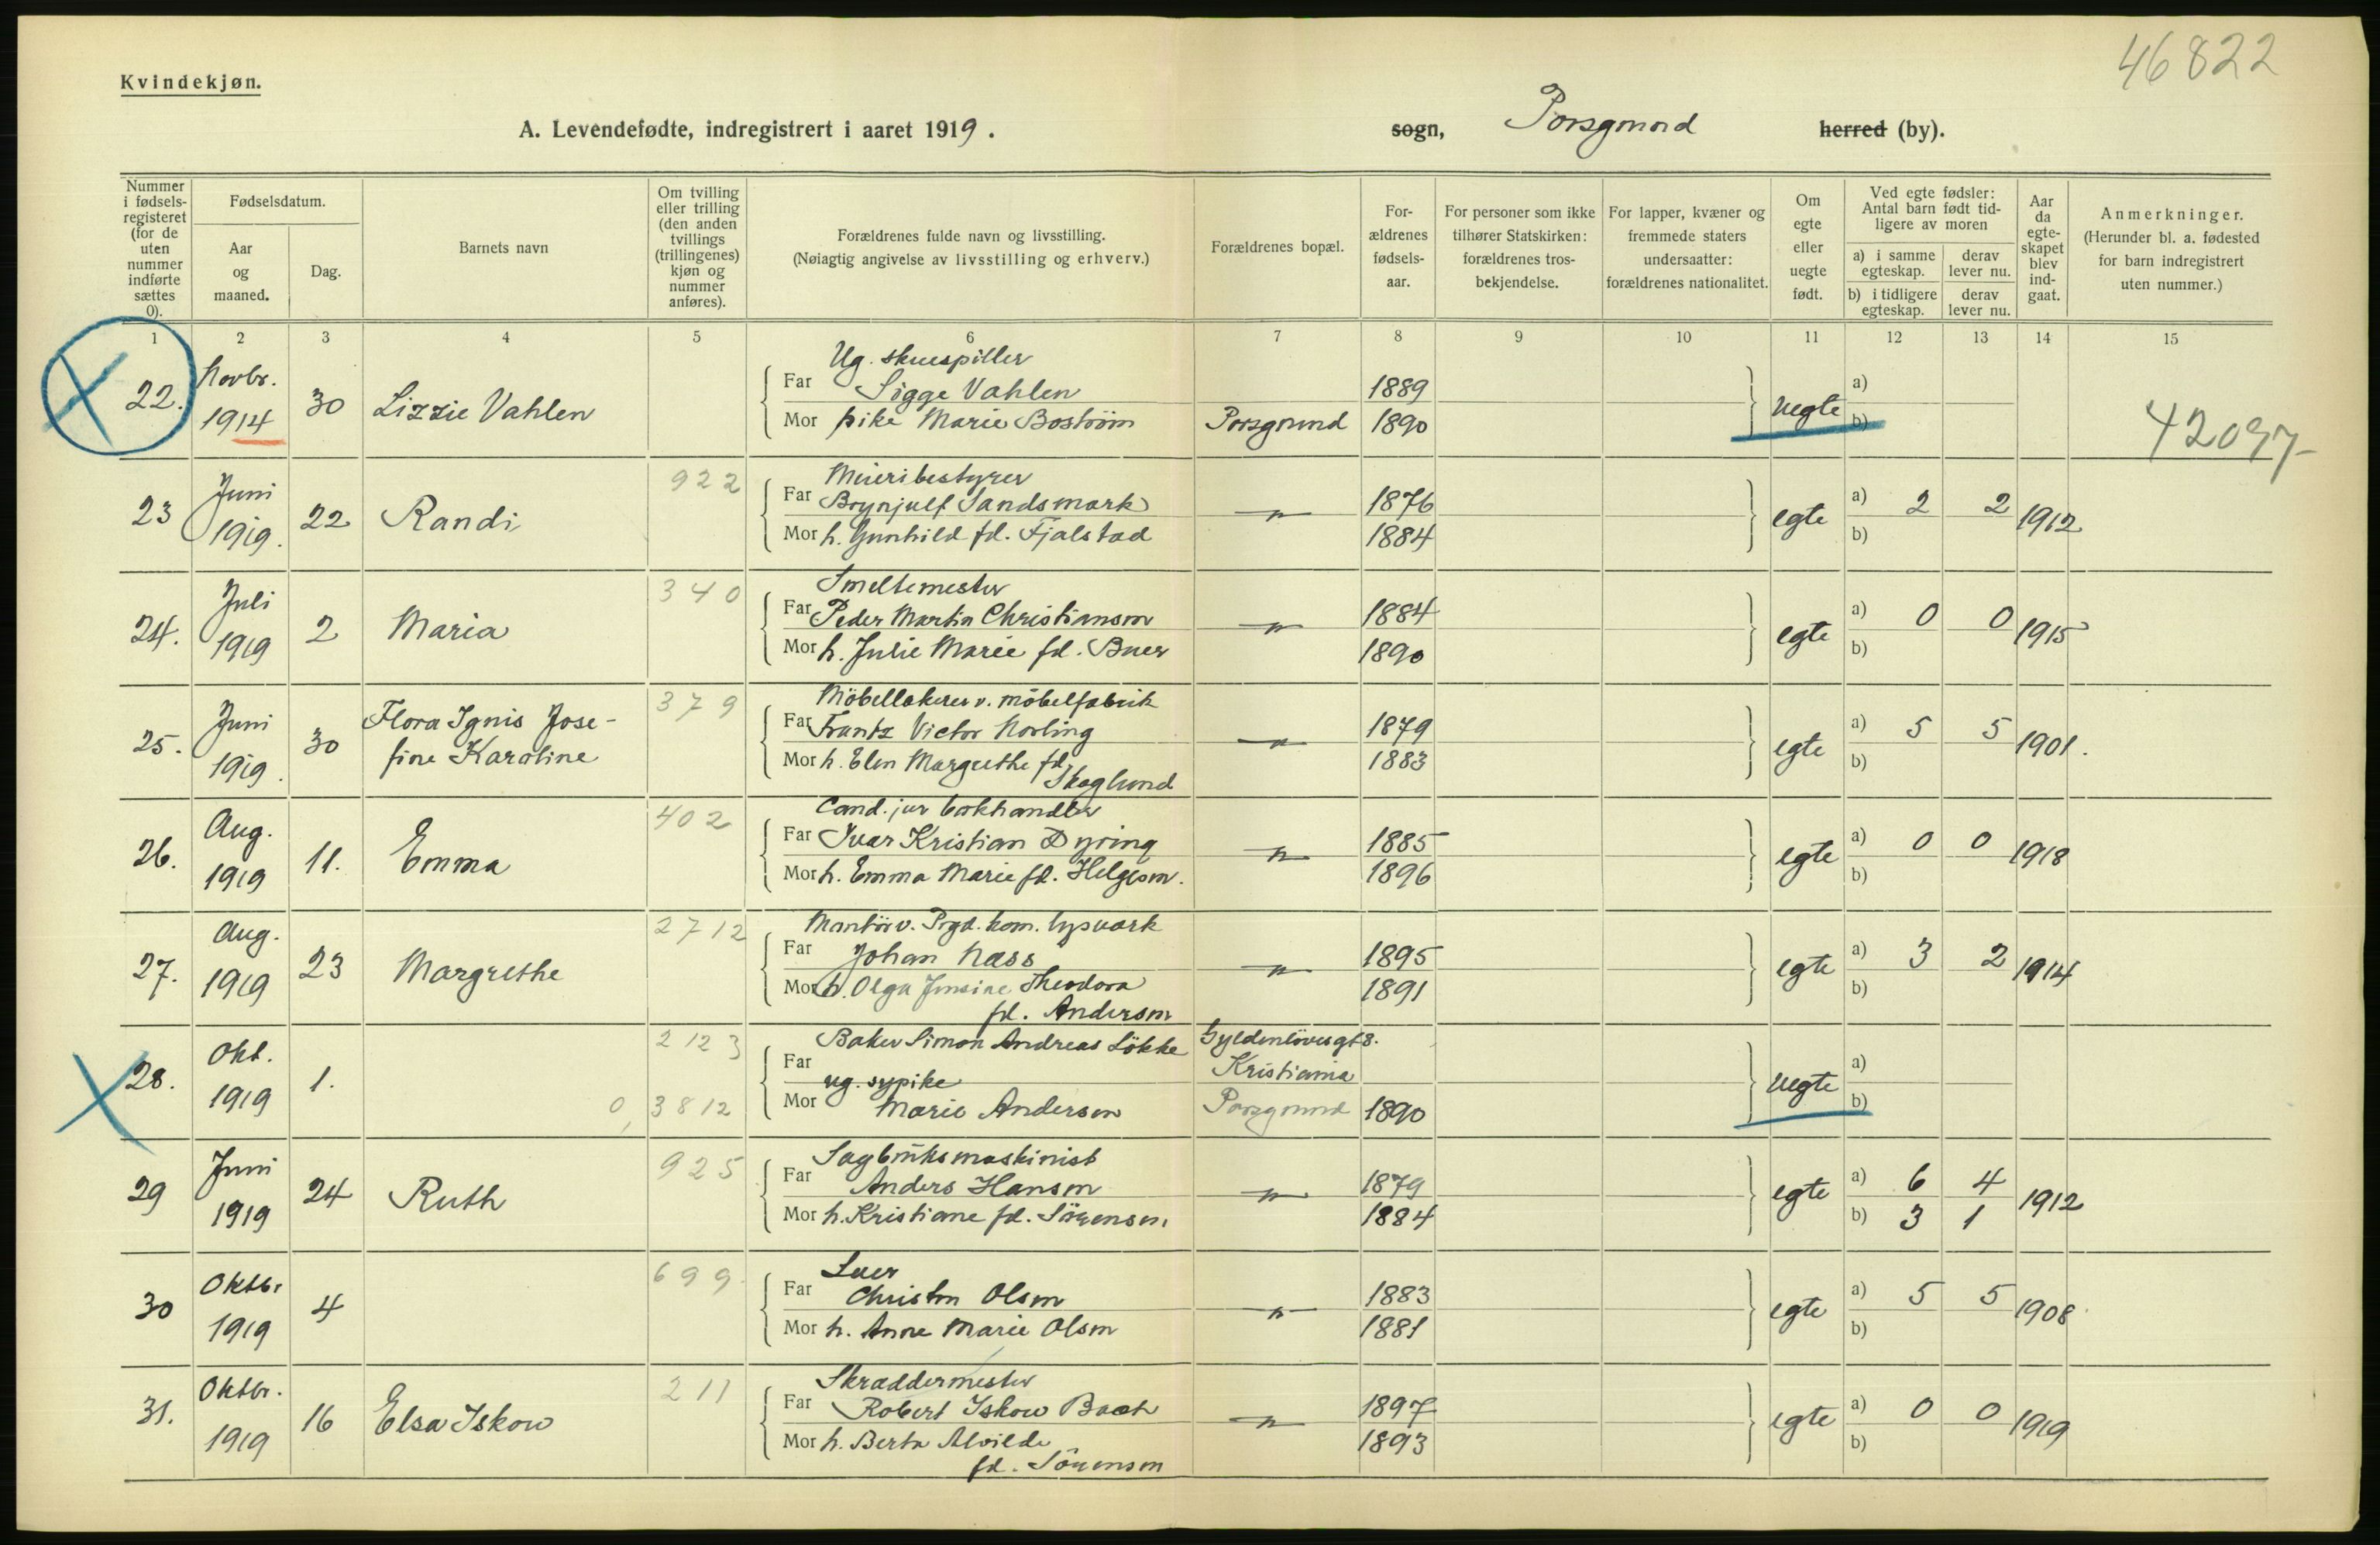 46822
Kvindekjøn.
A. Levendefødte, indregistrert i aaret 1919.
sogn, Porsgrund herred (by).
Nummer i fødselsregisteret (for de uten nummer indførte sættes 0).
Fødselsdatum.
Aar og maaned.
Dag.
Barnets navn
Om tvilling eller trilling (den anden tvillings (trillingenes) kjøn og nummer anføres).
Forældrenes fulde navn og livsstilling.
(Nøiagtig angivelse av livsstilling og erhverv.)
Forældrenes bopæl.
Forældrenes fødselsaar.
For personer som ikke tilhører Statskirken: forældrenes trosbekjendelse.
For lapper, kvæner og fremmede staters undersaatter: forældrenes nationalitet.
Om egte eller uegte født.
Ved egte fødsler: Antal barn født tidligere av moren
a) i samme egteskap.
derav lever nu.
b) i tidligere egteskap.
derav lever nu.
Aar da egteskapet blev indgaat.
Anmerkninger.
(Herunder bl. a. fødested for barn indregistrert uten nummer.)
1 2 3 4 5 6 7 8 9 10 11 12 13 14 15
Ug. skuespiller
22. Novbr. 1914 30 Lizzie Vahlen
Far Sigge Vahlen 1889
Mor pike Marie Boström Porsgrund 1890
uegte a) b)
42097-
922
Meieribestyrer
23 Juni 1919. 22 Randi
Far Brynjulf Sandsmark 1876
Mor h. Gunhild fd. Fjalstad 1884
— " — egte a) 2 2 b) 1912
340
Smeltemester
24. Juli 1919 2 Maria
Far Peder Martin Christiansen 1884
Mor h. Julie Marie fd. Buer 1890
— " — egte a) 0 0 b) 1915
379
Möbellakerer v. möbelfabrik
25. Juni 1919. 30 Flora Ignis Jose-
fine Karoline
Far Frantz Victor Norling 1879
Mor h. Elen Margrethe fd. 1883
Skoglund
— " — egte a) 5 5 b) 1901.
402
Cand. jur bokhandler
26. Aug. 1919 11. Emma
Far Ivar Kristian Dyring 1885
Mor h. Emma Marie fd. Helgesen. 1896
— " — egte a) 0 0 b) 1918
2712
Montör v. Prgd. kom. lysverk
27. Aug. 1919 23 Margrethe
Far Johan Næss 1895
Mor h. Olga Jensine Theodora 1891
fd. Andersen
— " — egte a) 3 2 b) 1914
2123
Baker Simon Andreas Lökke Gyldenlövesgt 8.
28. Okt. 1919 1.
Far Kristiania
ug. sypike
0, 3812
Mor Marie Andersen Porsgrund 1890
uegte a) b)
925
Sagbruksmaskinist
29 Juni 1919 24 Ruth
Far Anders Hansen 1879
Mor h. Kristiane fd. Sörensen 1884
— " — egte a) 6 4 b) 3 1 1912
699
30 Oktbr 1919 4
Far Christen Olsen 1883
Mor h. Anne Marie Olsen 1881
— " — egte a) 5 5 b) 1908
211
Skræddermester
31. Oktbr. 1919 16 Elsa Iskow
Far Robert Iskow Bach 1897
Mor h. Berta Alvilde 1893
fd. Sörensen
— " — egte a) 0 0 b) 1919